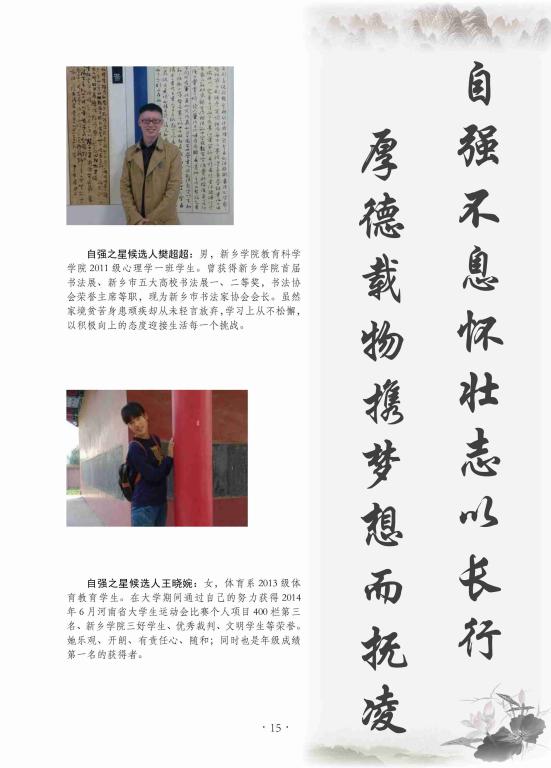 自强之星候选人樊超超：男，新乡学院教育科学
学院2011级心理学一班学生。曾获得新乡学院首届
书法展、新乡市五大高校书法展一、二等奖，书法协
会荣誉主席等职，现为新乡市书法家协会会长。虽然
家境贫苦身患顽疾却从未轻言放弃，学习上从不松懈，
以积极向上的态度迎接生活每一个挑战。
自强之星候选人王晓婉：女，体育系2013级体
育教育学生。在大学期间通过自己的努力获得2014
年6月河南省大学生运动会比赛个人项目400栏第三
名、新乡学院三好学生、优秀裁判、文明学生等荣誉。
她乐观、开朗、有责任心、随和；同时也是年级成绩
第一名的获得者。
自强不息怀壮志以长行
厚德载物携梦想而抚凌
·15·